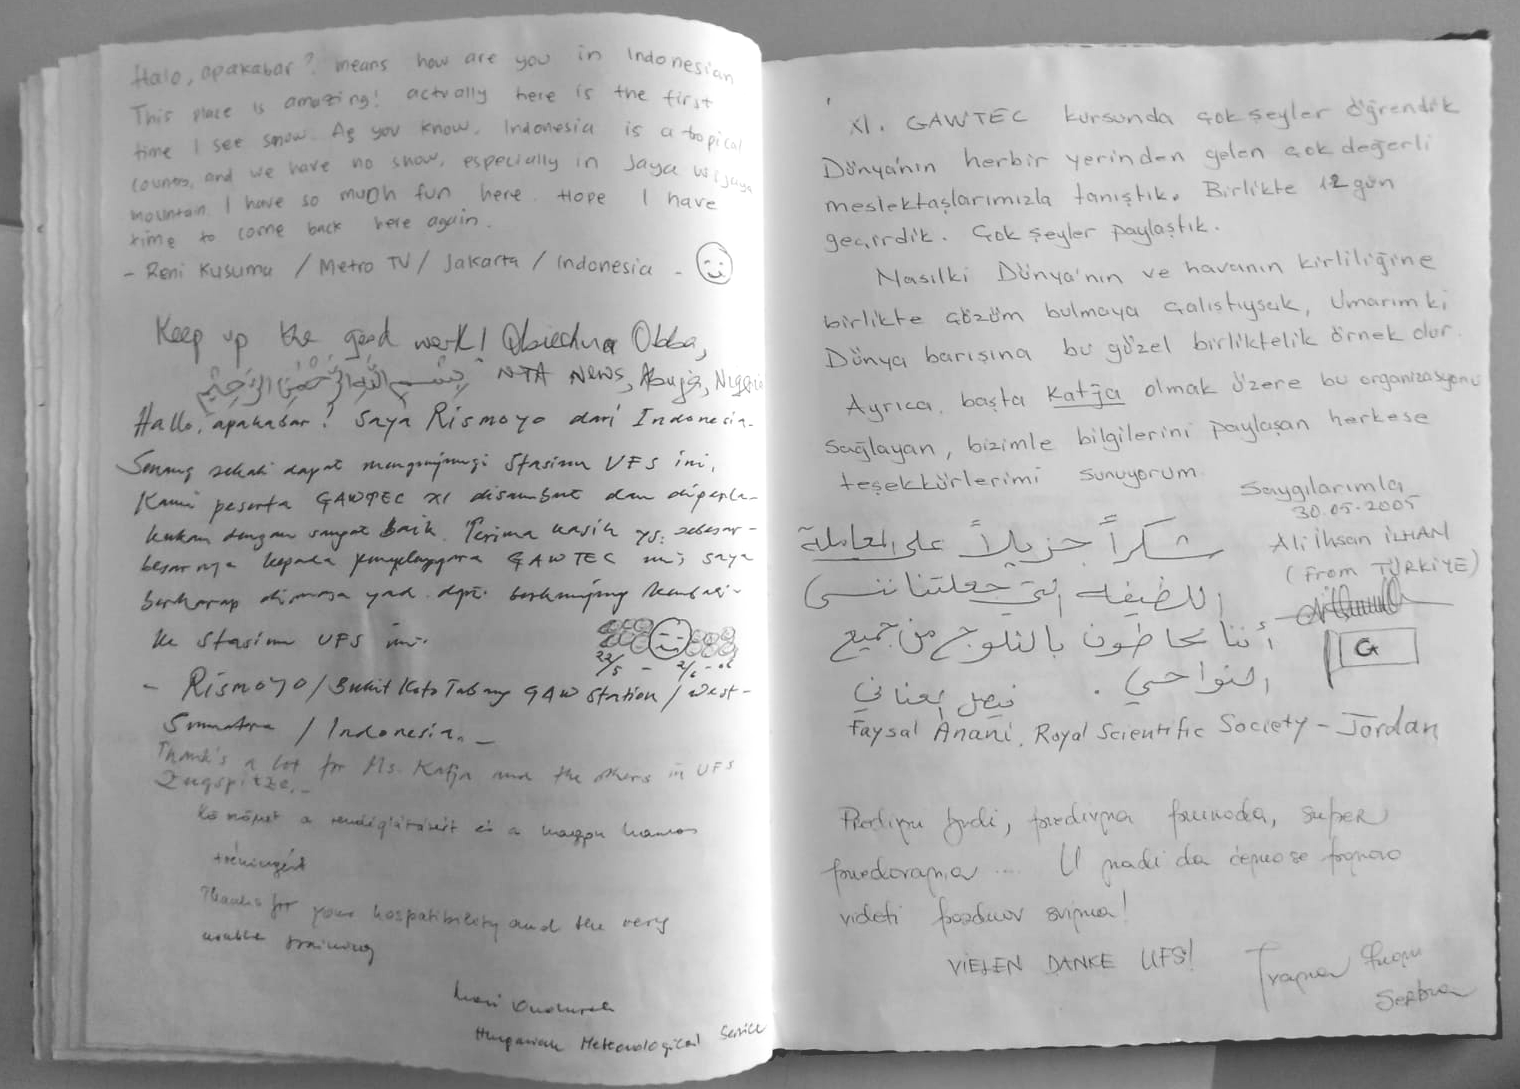 Halo, apakabar? means how are you in Indonesian
This place is amazing! actually here is the first
time I see snow. As you know, Indonesia is a topical
country, and we have no snow, especially in Jaya Wijaya
mountain. I have so much fun here. Hope I have
time to come back here again.
- Reni Kusuma / Metro TV / Jakarta / Indonesia -
Keep up the good work! Obiechina Obba,
NTA News, Abuja, Nigeria
بِسْمِ اللَّهِ الرَّحْمَنِ الرَّحِيْمِ
Hallo, apakabar! Saya Rismoyo dari Indonesia.
Senang sekali dapat mengunjungi Stasiun UFS ini.
Kami peserta GAWTEC XI disambut dan diperla-
kukan dengan sangat baik. Terima kasih yg. sebesar-
besarnya kepada penyelenggara GAWTEC ini, saya
berharap dimasa yad. dpt. berkunjung kembali
ke Stasiun UFS ini.
22/5 -
- Rismoyo / Bukit Koto Tabang GAW Station / West-
Sumatera / Indonesia. -
Thank's a lot for Ms. Katja and the others in UFS
Zugspitze. -
Köszönet a vendéglátásért és a nagyon hasznos
tréningért
Thanks for your hospatibility and the very
usable training
Hungarian Meteorological Service
XI. GAWTEC kursunda çok şeyler öğrendik
Dünya'nın herbir yerinden gelen çok değerli
meslektaşlarımızla tanıştık. Birlikte 12 gün
geçirdik. Çok şeyler paylaştık.
Nasılki Dünya'nın ve havanın kirliliğine
birlikte çözüm bulmaya çalıştıysak, Umarım ki
Dünya barışına bu güzel birliktelik örnek olur.
Ayrıca, başta Katja olmak üzere bu organizasyonu
sağlayan, bizimle bilgilerini paylaşan herkese
teşekkürlerimi sunuyorum
Saygılarımla
30.05.2005
Ali İhsan İLHAN
(from TÜRKİYE)
شكراً جزيلاً على المعاملة
اللطيفه التي جعلتنا ننسى
أننا محاطون بالثلوج من جميع
النواحي.
فيصل العناني
Faysal Anani, Royal Scientific Society - Jordan
Predivni ljudi, predivna priroda, super
predavanja .... U nadi da ćemo se ponovo
videti pozdrav svima!
VIELEN DANKE UFS!
Serbia